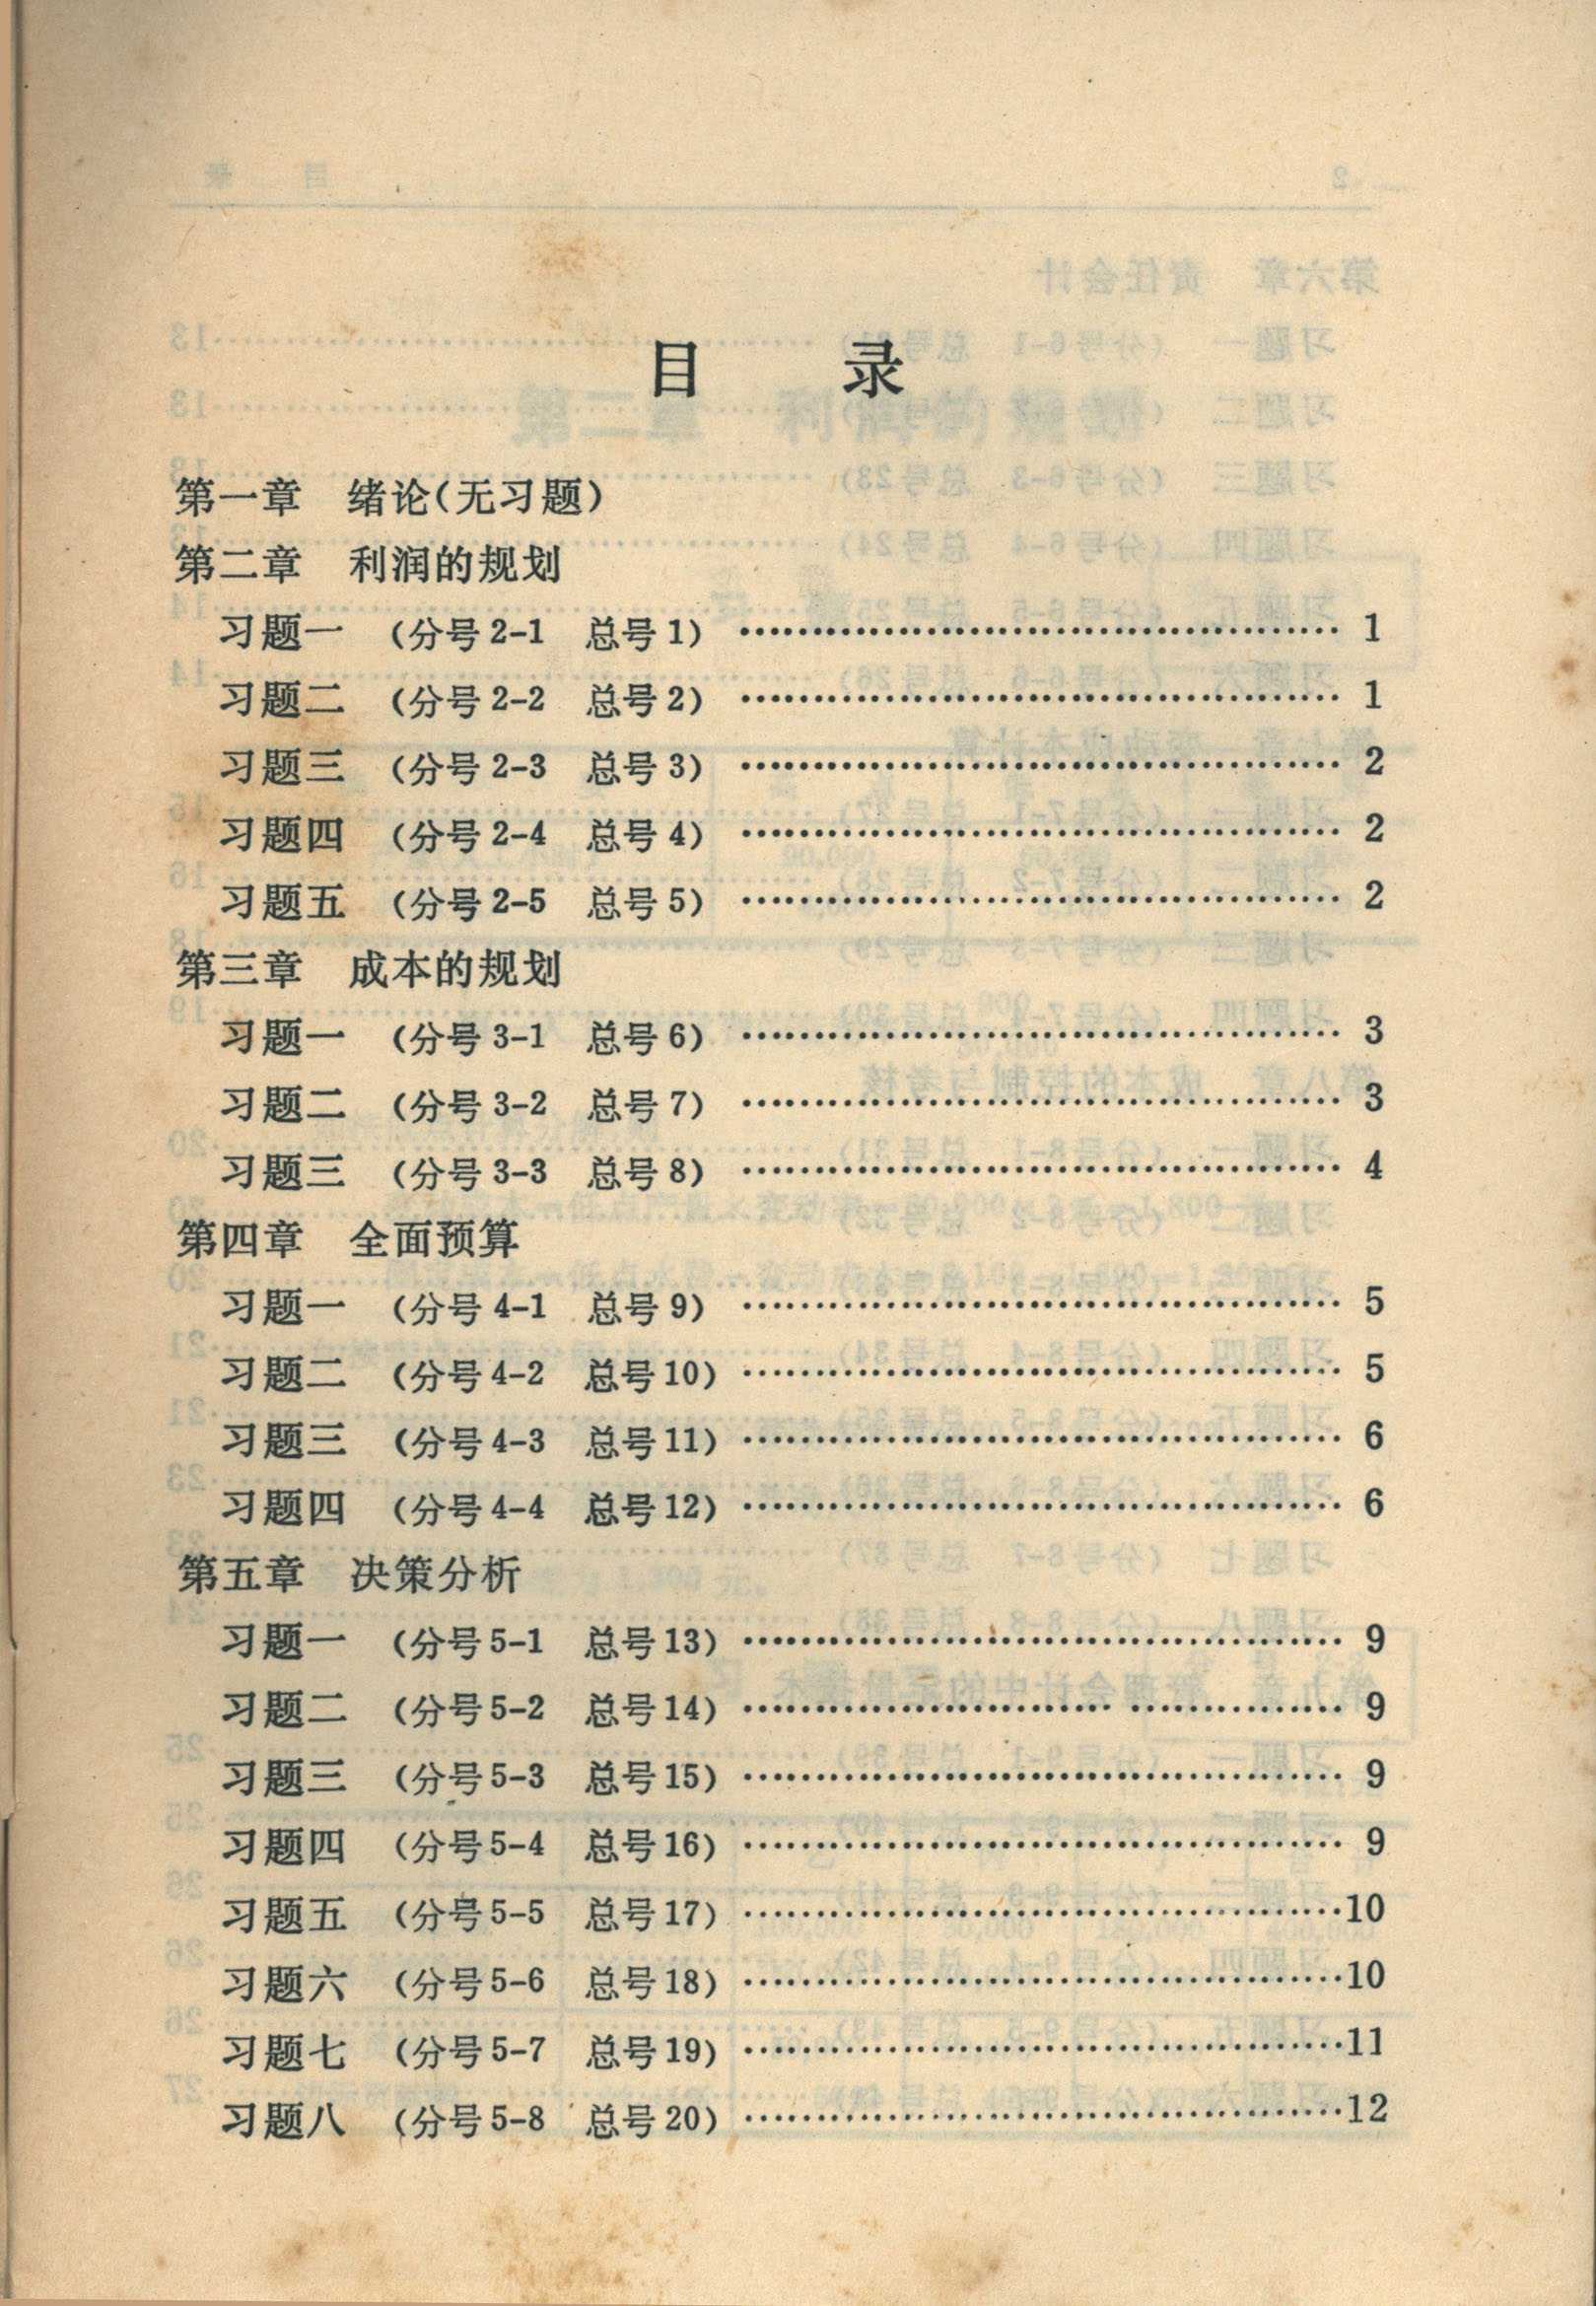 目 录
第一章 绪论(无习题)
第二章 利润的规划
习题一 (分号2-1 总号1) ………………………………… 1
习题二 (分号2-2 总号2) ………………………………… 1
习题三 (分号2-3 总号3) ………………………………… 2
习题四 (分号2-4 总号4) ………………………………… 2
习题五 (分号2-5 总号5) ………………………………… 2
第三章 成本的规划
习题一 (分号3-1 总号6) ………………………………… 3
习题二 (分号3-2 总号7) ………………………………… 3
习题三 (分号3-3 总号8) ………………………………… 4
第四章 全面预算
习题一 (分号4-1 总号9) ………………………………… 5
习题二 (分号4-2 总号10) ………………………………… 5
习题三 (分号4-3 总号11) ………………………………… 6
习题四 (分号4-4 总号12) ………………………………… 6
第五章 决策分析
习题一 (分号5-1 总号13) ………………………………… 9
习题二 (分号5-2 总号14) ………………………………… 9
习题三 (分号5-3 总号15) ………………………………… 9
习题四 (分号5-4 总号16) ………………………………… 9
习题五 (分号5-5 总号17) …………………………………10
习题六 (分号5-6 总号18) …………………………………10
习题七 (分号5-7 总号19) …………………………………11
习题八 (分号5-8 总号20) …………………………………12